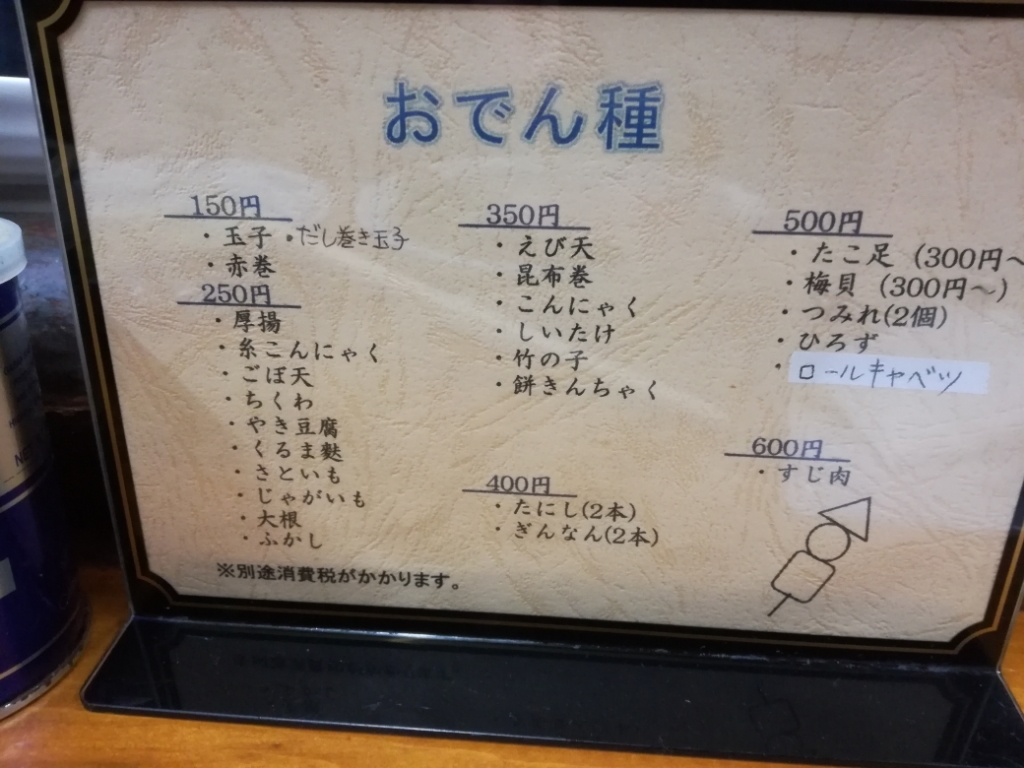 おでん種
150円
・玉子 ・だし巻き玉子
・赤巻
250円
・厚揚
・糸こんにゃく
・ごぼ天
・ちくわ
・やき豆腐
・くるま麩
・さといも
・じゃがいも
・大根
・ふかし
350円
・えび天
・昆布巻
・こんにゃく
・しいたけ
・竹の子
・餅きんちゃく
400円
・たにし(2本)
・ぎんなん(2本)
500円
・たこ足 (300円～
・梅貝 (300円～)
・つみれ(2個)
・ひろず
・ロールキャベツ
600円
・すじ肉
※別途消費税がかかります。